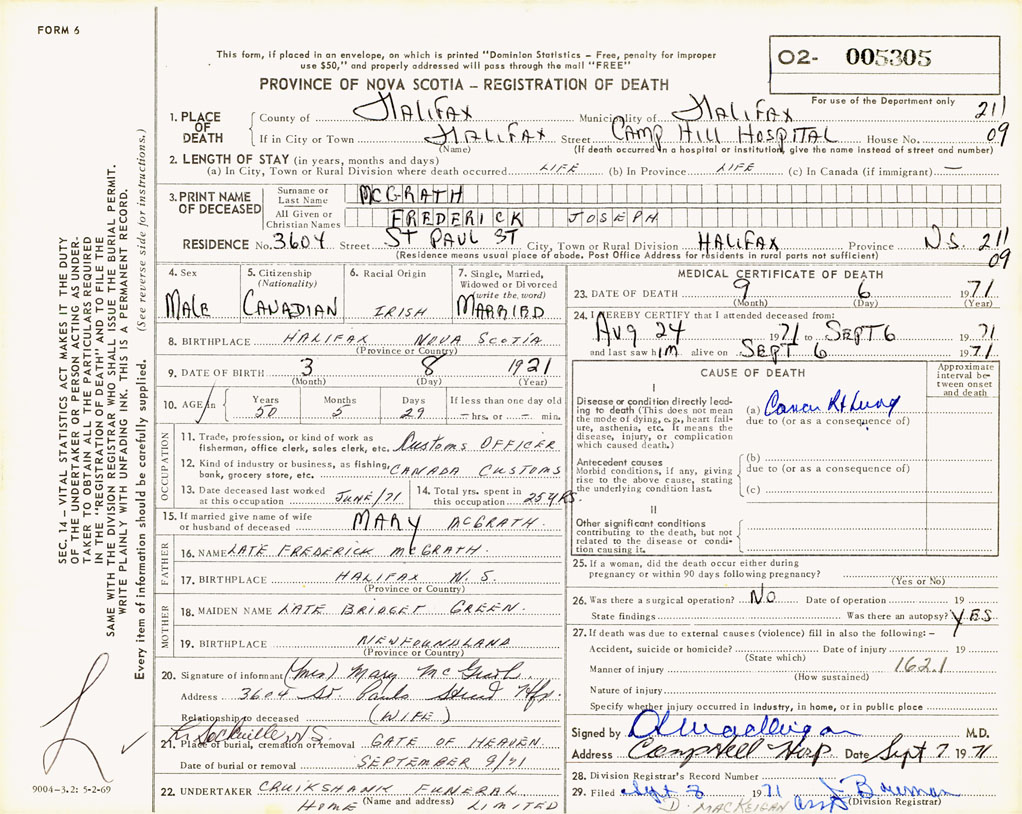 FORM 6
This form, if placed in an envelope, on which is printed "Dominion Statistics – Free, penalty for improper
use $50," and properly addressed will pass through the mail "FREE"
PROVINCE OF NOVA SCOTIA – REGISTRATION OF DEATH
02- 005305
For use of the Department only
SEC. 14 – VITAL STATISTICS ACT MAKES IT THE DUTY
OF THE UNDERTAKER OR PERSON ACTING AS UNDER-
TAKER TO OBTAIN ALL THE PARTICULARS REQUIRED
IN THE "REGISTRATION OF DEATH" AND TO FILE THE
SAME WITH THE DIVISION REGISTRAR WHO SHALL ISSUE THE BURIAL PERMIT.
WRITE PLAINLY WITH UNFADING INK. THIS IS A PERMANENT RECORD.
Every item of information should be carefully supplied. (See reverse side for instructions.)
1. PLACE OF DEATH
County of HALIFAX Municipality of HALIFAX 211
If in City or Town HALIFAX Street CAMP HILL HOSPITAL House No. 09
(Name) (If death occurred in a hospital or institution, give the name instead of street and number)
2. LENGTH OF STAY (in years, months and days)
(a) In City, Town or Rural Division where death occurred LIFE (b) In Province LIFE (c) In Canada (if immigrant) —
3. PRINT NAME OF DECEASED
Surname or Last Name MCGRATH
All Given or Christian Names FREDERICK JOSEPH
RESIDENCE No. 3604 Street ST PAUL ST City, Town or Rural Division HALIFAX Province N.S. 211
(Residence means usual place of abode. Post Office Address for residents in rural parts not sufficient) 09
4. Sex MALE
5. Citizenship (Nationality) CANADIAN
6. Racial Origin IRISH
7. Single, Married, Widowed or Divorced (write the word) MARRIED
8. BIRTHPLACE HALIFAX NOVA SCOTIA
(Province or Country)
9. DATE OF BIRTH 3 8 1921
(Month) (Day) (Year)
10. AGE in Years 50 Months 5 Days 29 If less than one day old – hrs. or – min.
OCCUPATION
11. Trade, profession, or kind of work as
fisherman, office clerk, sales clerk, etc. CUSTOMS OFFICER
12. Kind of industry or business, as fishing,
bank, grocery store, etc. CANADA CUSTOMS
13. Date deceased last worked
at this occupation JUNE/71
14. Total yrs. spent in
this occupation 25 YRS.
15. If married give name of wife
or husband of deceased MARY MCGRATH.
FATHER
16. NAME LATE FREDERICK MCGRATH.
17. BIRTHPLACE HALIFAX N.S.
(Province or Country)
MOTHER
18. MAIDEN NAME LATE BRIDGET GREEN.
19. BIRTHPLACE NEWFOUNDLAND
(Province or Country)
20. Signature of informant (Mrs) Mary McGrath
Address 3604 St. Pauls Street Hfx.
Relationship to deceased (WIFE)
Sackville, N.S.
21. Place of burial, cremation or removal GATE OF HEAVEN
Date of burial or removal SEPTEMBER 9/71
22. UNDERTAKER CRUIKSHANK FUNERAL
HOME LIMITED
(Name and address)
9004-3.2: 5-2-69
MEDICAL CERTIFICATE OF DEATH
23. DATE OF DEATH 9 6 1971
(Month) (Day) (Year)
24. I HEREBY CERTIFY that I attended deceased from:
AUG 24 1971 to SEPT 6 1971
and last saw him alive on SEPT 6 1971
CAUSE OF DEATH
Approximate interval between onset and death
I
Disease or condition directly lead-
ing to death (This does not mean
the mode of dying, e.g., heart fail-
ure, asthenia, etc. It means the
disease, injury, or complication
which caused death.)
(a) Cancer Rt Lung
due to (or as a consequence of)
Antecedent causes
Morbid conditions, if any, giving
rise to the above cause, stating
the underlying condition last.
(b)
due to (or as a consequence of)
(c)
II
Other significant conditions
contributing to the death, but not
related to the disease or condi-
tion causing it.
25. If a woman, did the death occur either during
pregnancy or within 90 days following pregnancy?
(Yes or No)
26. Was there a surgical operation? NO Date of operation 19
State findings Was there an autopsy? YES
27. If death was due to external causes (violence) fill in also the following: –
Accident, suicide or homicide? Date of injury 19
(State which)
Manner of injury 162.1
(How sustained)
Nature of injury
Specify whether injury occurred in industry, in home, or in public place
Signed by M.D.
Address Camp Hill Hosp. Date Sept 7 1971
28. Division Registrar's Record Number
29. Filed Sept 8 1971
D. MACKEIGAN
(Division Registrar)